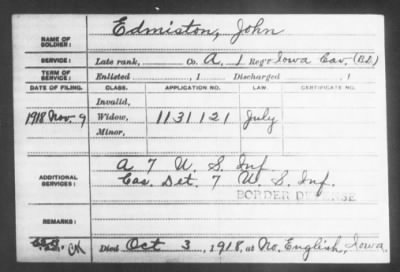 NAME OF SOLDIER: Edmiston, John
SERVICE: Late rank, Co. A, 1 Reg't Iowa Cav, (B.D.)
TERM OF SERVICE: Enlisted , 1 Discharged , 1
DATE OF FILING. CLASS. APPLICATION NO. LAW. CERTIFICATE NO.
Invalid,
1918 Nov. 9 Widow, 1131121 July
Minor,
ADDITIONAL SERVICES: A 7 U. S. Inf.
Cas. Det. 7 U. S. Inf.
BORDER DEFENSE
REMARKS:
CK Died Oct 3, 1918, at No. English, Iowa.